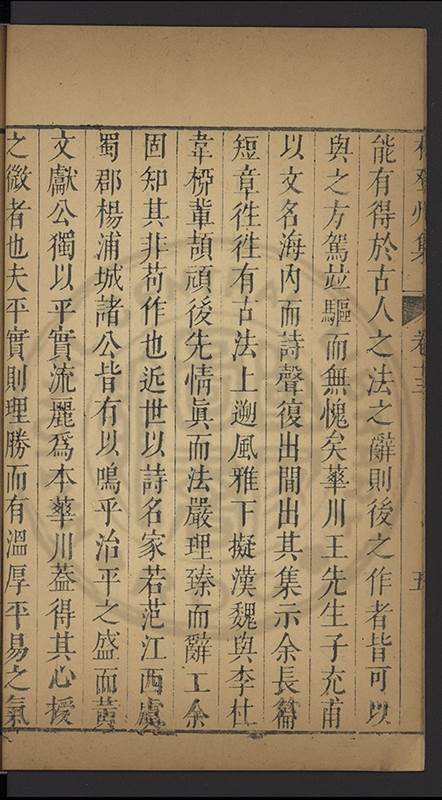 能有得於古人之法之辭則後之作者皆可以
與之方駕竝驅而無愧矣華川王先生子充甫
以文名海內而詩聲復出間出其集示余長篇
短章徃徃有古法上遡風雅下擬漢魏與李杜
韋栁軰頡頏後先情真而法嚴理臻而辭工余
固知其非苟作也近世以詩名家若范江西虞
蜀郡楊浦城諸公皆有以鳴乎治平之盛而黃
文獻公獨以平實流麗爲本華川葢得其心授
之微者也夫平實則理勝而有溫厚平易之氣